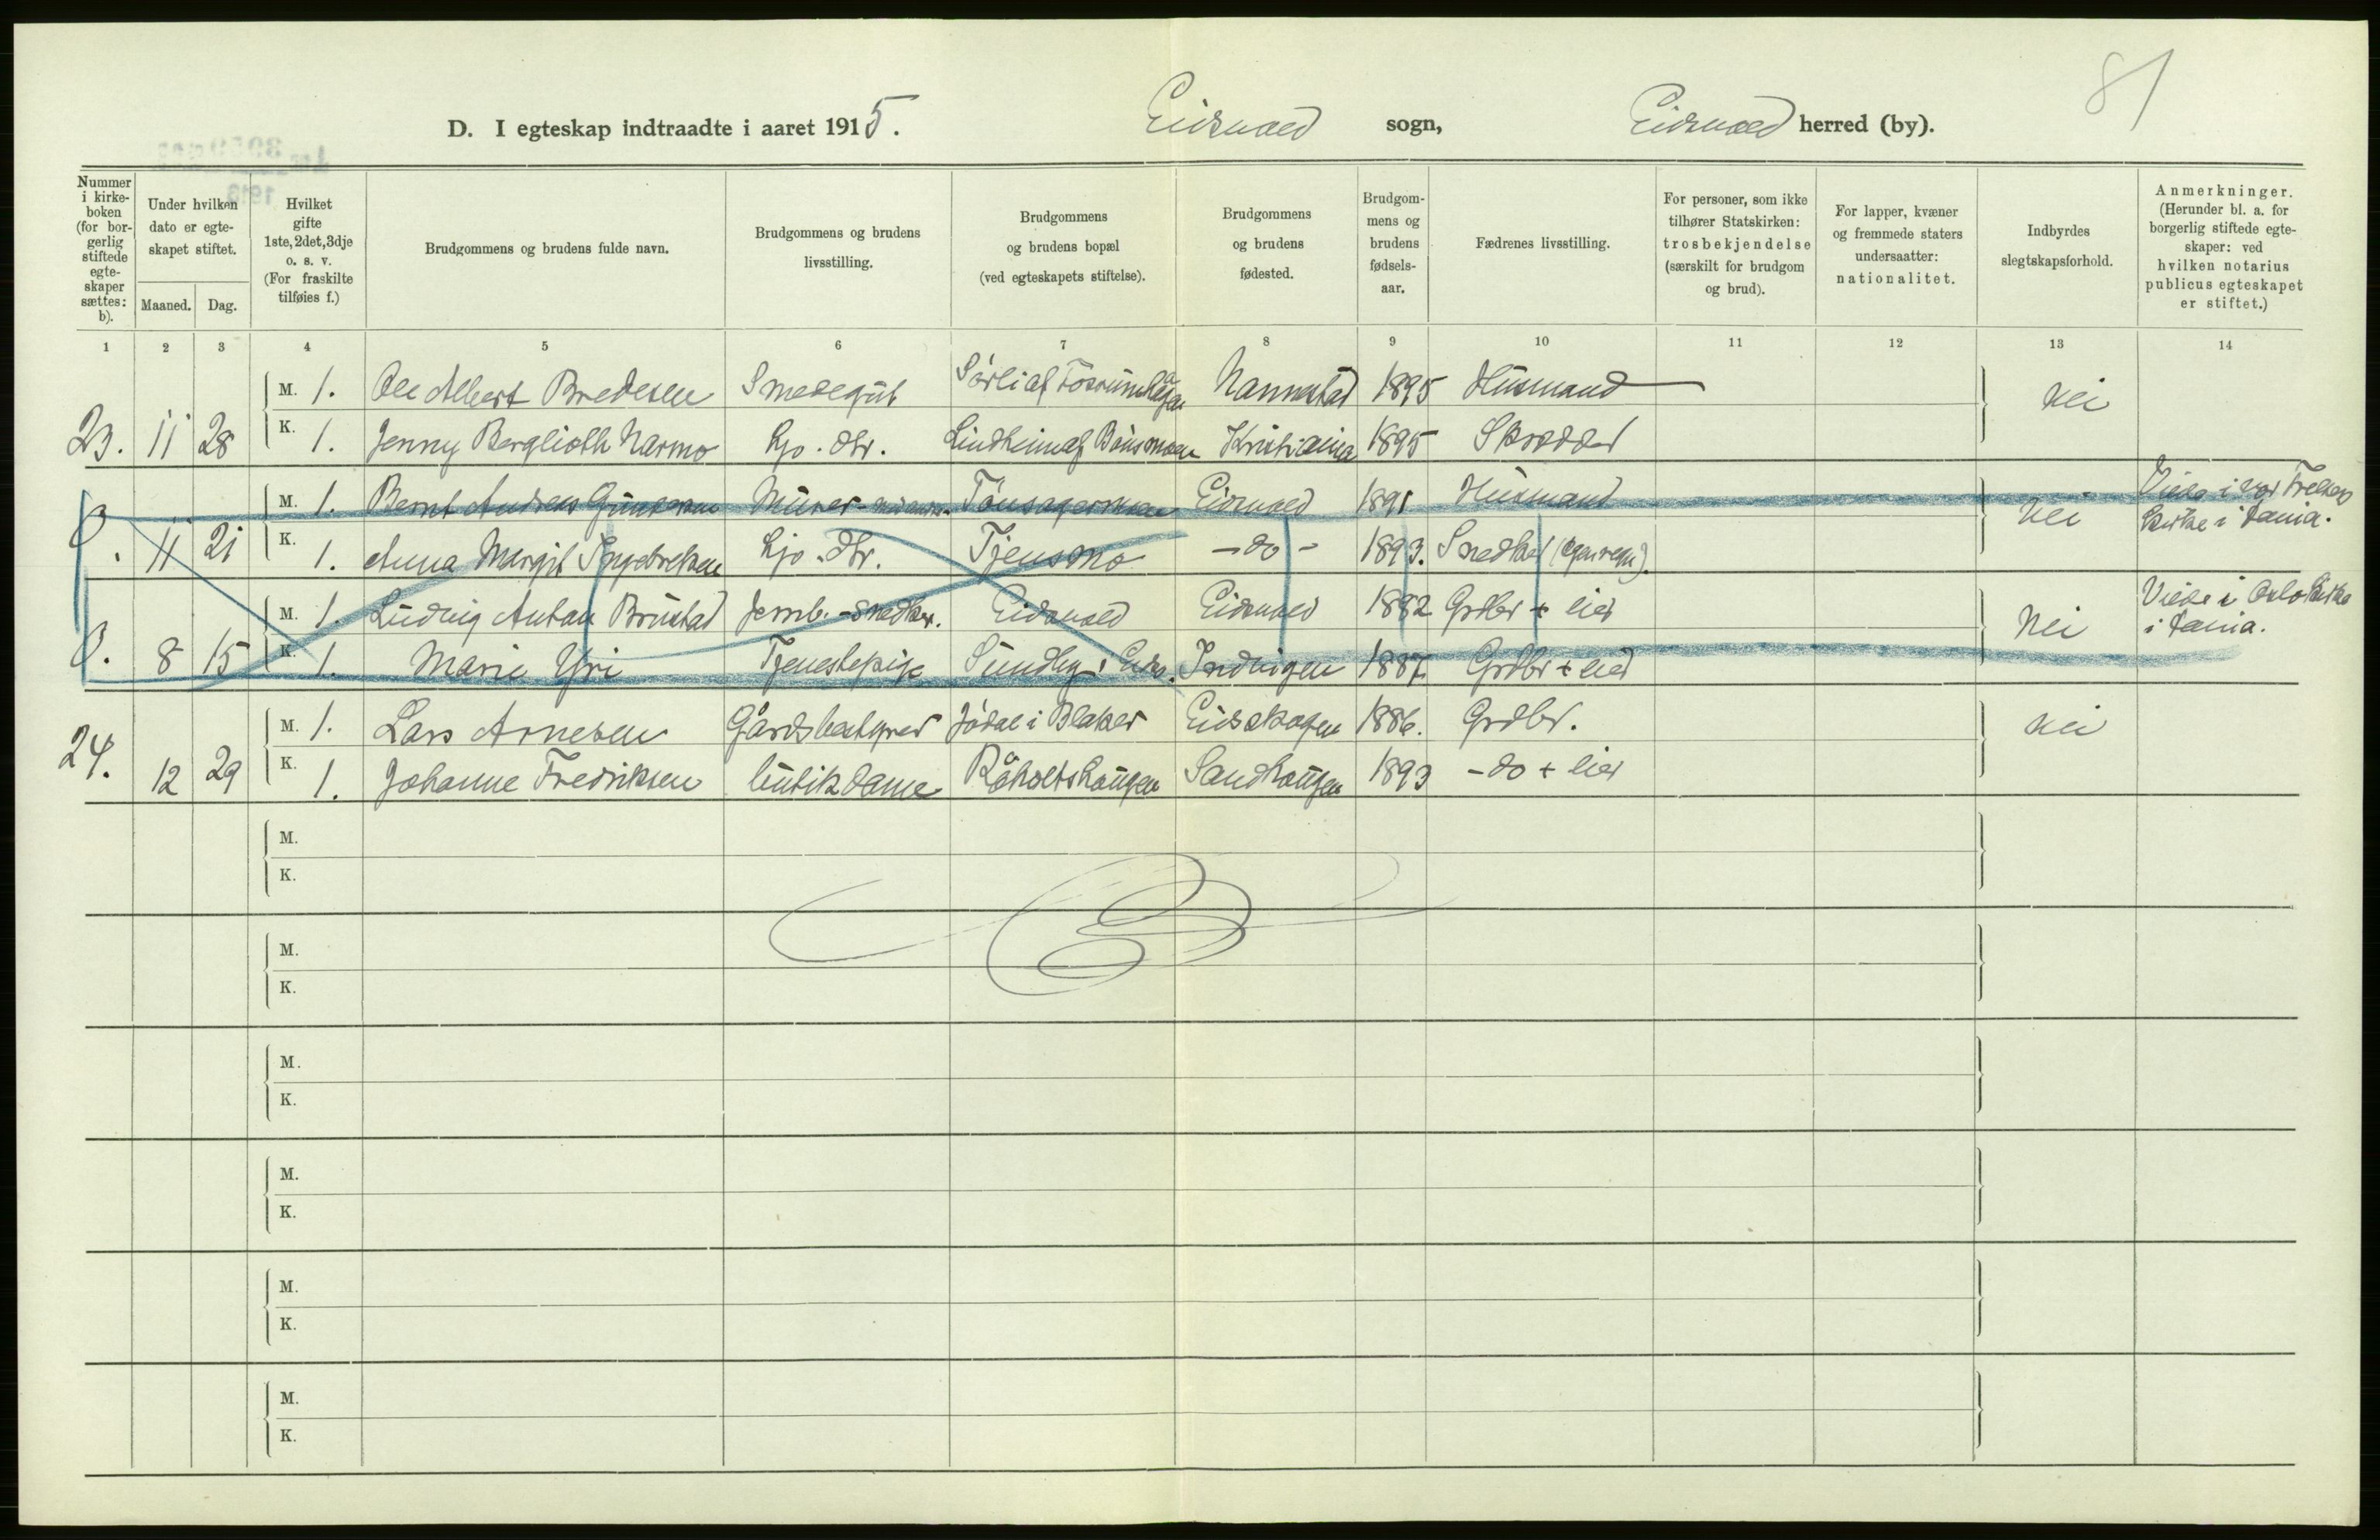 81
D. I egteskap indtraadte i aaret 1915. Eidsvold sogn, Eidsvold herred (by).
Nummer i kirkeboken (for borgerlig stiftede egteskaper sættes: b).
Under hvilken dato er egteskapet stiftet.
Maaned. Dag.
Hvilket gifte 1ste, 2det, 3dje o. s. v. (For fraskilte tilføies f.)
Brudgommens og brudens fulde navn.
Brudgommens og brudens livsstilling.
Brudgommens og brudens bopæl (ved egteskapets stiftelse).
Brudgommens og brudens fødested.
Brudgommens og brudens fødselsaar.
Fædrenes livsstilling.
For personer, som ikke tilhører Statskirken: trosbekjendelse (særskilt for brudgom og brud).
For lapper, kvæner og fremmede staters undersaatter: nationalitet.
Indbyrdes slegtskapsforhold.
Anmerkninger. (Herunder bl. a. for borgerlig stiftede egteskaper: ved hvilken notarius publicus egteskapet er stiftet.)
1 2 3 4 5 6 7 8 9 10 11 12 13 14
M. 1. Ole Albert Bredesen Smedegut Sørli af Nannestad 1895 Husmand Nei
23. 11 28 K. 1. Jenny Berglioth Narmo Hjv. dtr. Lindheim af Bönsmoen Kristiania 1895 Skrædder
M. 1. Bernt Andreas Gundersen Murer Tönsagermoen Eidsvold 1891 Husmand Nei Viede i Vor Frelsers
0. 11 21 K. 1. Anna Margit Ingebretsen Hjv. dtr. Tjensmo - do - 1893. Snedker (egen regn). Kirke i Kania.
M. 1. Ludvig Anton Brustad Jernb.-snedker. Eidsvold Eidsvold 1882 Grdbr + eier Nei Viede i Oslo Kirke
0. 8 15 K. 1. Marie Yri Tjenestepige Sundby i Eidsv. Indvigen 1887. Grdbr + eier i Kania.
M. 1. Lars Arnesen Gårdsbestyrer Jödal i Blaker Eidskogen 1886. Grdbr. Nei
24. 12 29 K. 1. Johanne Fredriksen butikdame Råholtshaugen Sandhaugen 1893 - do + eier
M.
K.
M.
K.
M.
K.
M.
K.
M.
K.
M.
K.